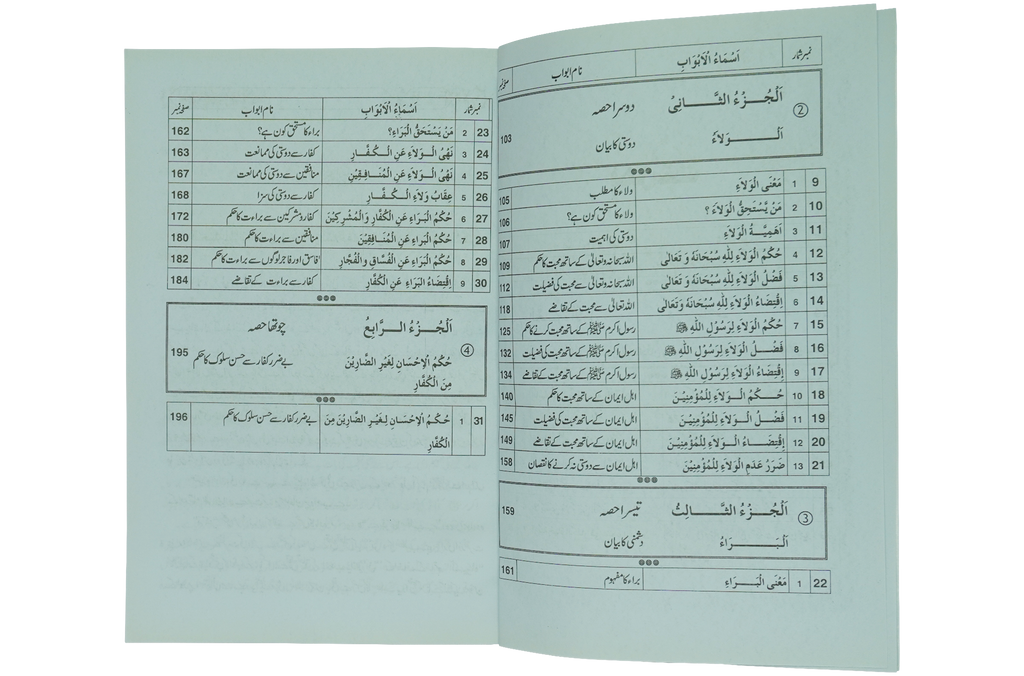 نمبر شمار اَسْمَاءُ الْاَبْوَابِ نام ابواب صفحہ نمبر
② اَلْجُزْءُ الثَّانِیْ دوسرا حصہ
اَلْوَلَاءُ دوستی کا بیان 103
9 1 مَعْنَی الْوَلَاءِ ولاء کا مطلب 105
10 2 مَنْ یَّسْتَحِقُّ الْوَلَاءَ ؟ ولاء کا مستحق کون ہے؟ 106
11 3 اَهَمِیَّةُ الْوَلَاءِ دوستی کی اہمیت 107
12 4 حُکْمُ الْوَلَاءِ لِلّٰهِ سُبْحَانَهٗ وَ تَعَالٰی اللہ سبحانہ وتعالیٰ کے ساتھ محبت کا حکم 109
13 5 فَضْلُ الْوَلَاءِ لِلّٰهِ سُبْحَانَهٗ وَ تَعَالٰی اللہ سبحانہ وتعالیٰ سے محبت کی فضیلت 112
14 6 اِقْتِضَاءُ الْوَلَاءِ لِلّٰهِ سُبْحَانَهٗ وَتَعَالٰی اللہ تعالیٰ سے محبت کے تقاضے 118
15 7 حُکْمُ الْوَلَاءِ لِرَسُوْلِ اللّٰهِ ﷺ رسول اکرم ﷺ کے ساتھ محبت کرنے کا حکم 125
16 8 فَضْلُ الْوَلَاءِ لِرَسُوْلِ اللّٰهِ ﷺ رسول اکرم ﷺ کے ساتھ محبت کی فضیلت 132
17 9 اِقْتِضَاءُ الْوَلَاءِ لِرَسُوْلِ اللّٰهِ ﷺ رسول اکرم ﷺ کے ساتھ محبت کے تقاضے 134
18 10 حُکْمُ الْوَلَاءِ لِلْمُؤْمِنِیْنَ اہل ایمان کے ساتھ محبت کا حکم 140
19 11 فَضْلُ الْوَلَاءِ لِلْمُؤْمِنِیْنَ اہل ایمان کے ساتھ محبت کی فضیلت 145
20 12 اِقْتِضَاءُ الْوَلَاءِ لِلْمُؤْمِنِیْنَ اہل ایمان کے ساتھ محبت کے تقاضے 149
21 13 ضَرَرُ عَدَمِ الْوَلَاءِ لِلْمُؤْمِنِیْنَ اہل ایمان سے دوستی نہ کرنے کا نقصان 158
③ اَلْجُزْءُ الثَّالِثُ تیسرا حصہ 159
اَلْبَرَاءُ دشمنی کا بیان
22 1 مَعْنَی الْبَرَاءِ براء کا مفہوم 161
نمبر شمار اَسْمَاءُ الْاَبْوَابِ نام ابواب صفحہ نمبر
23 2 مَنْ یَسْتَحَقُّ الْبَرَاءِ؟ براء کا مستحق کون ہے؟ 162
24 3 نَهْیُ الْوَلَاءِ عَنِ الْکُفَّارِ کفار سے دوستی کی ممانعت 163
25 4 نَهْیُ الْوَلَاءِ عَنِ الْمُنَافِقِیْنَ منافقین سے دوستی کی ممانعت 167
26 5 عِقَابُ وَلَاءِ الْکُفَّارِ کفار سے دوستی کی سزا 168
27 6 حُکْمُ الْبَرَاءِ عَنِ الْکُفَّارِ وَالْمُشْرِکِیْنَ کفار و مشرکین سے براءت کا حکم 172
28 7 حُکْمُ الْبَرَاءِ عَنِ الْمُنَافِقِیْنَ منافقین سے براءت کا حکم 180
29 8 حُکْمُ الْبَرَاءِ عَنِ الْفُسَّاقِ وَالْفُجَّارِ فاسق اور فاجر لوگوں سے براءت کا حکم 182
30 9 اِقْتِضَاءُ الْبَرَاءِ عَنِ الْکُفَّارِ کفار سے براءت کے تقاضے 184
④ اَلْجُزْءُ الرَّابِعُ چوتھا حصہ
حُکْمُ الْاِحْسَانِ لِغَیْرِ الضَّارِیْنَ بے ضرر کفار سے حسن سلوک کا حکم 195
مِنَ الْکُفَّارِ
31 1 حُکْمُ الْاِحْسَانِ لِغَیْرِ الضَّارِیْنَ مِنَ بے ضرر کفار سے حسن سلوک کا حکم 196
الْکُفَّارِ